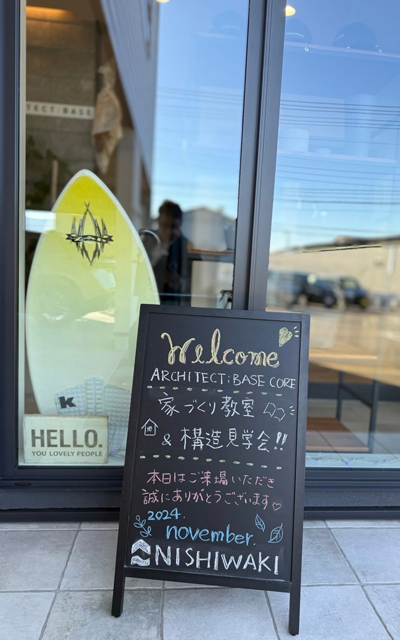 TECT:BASE
K
HELLO.
YOU LOVELY PEOPLE
Welcome
ARCHITECT:BASE CORE
家づくり教室
& 構造見学会!!
本日はご来場いただき
誠にありがとうございます♡
2024.
november.
NISHIWAKI